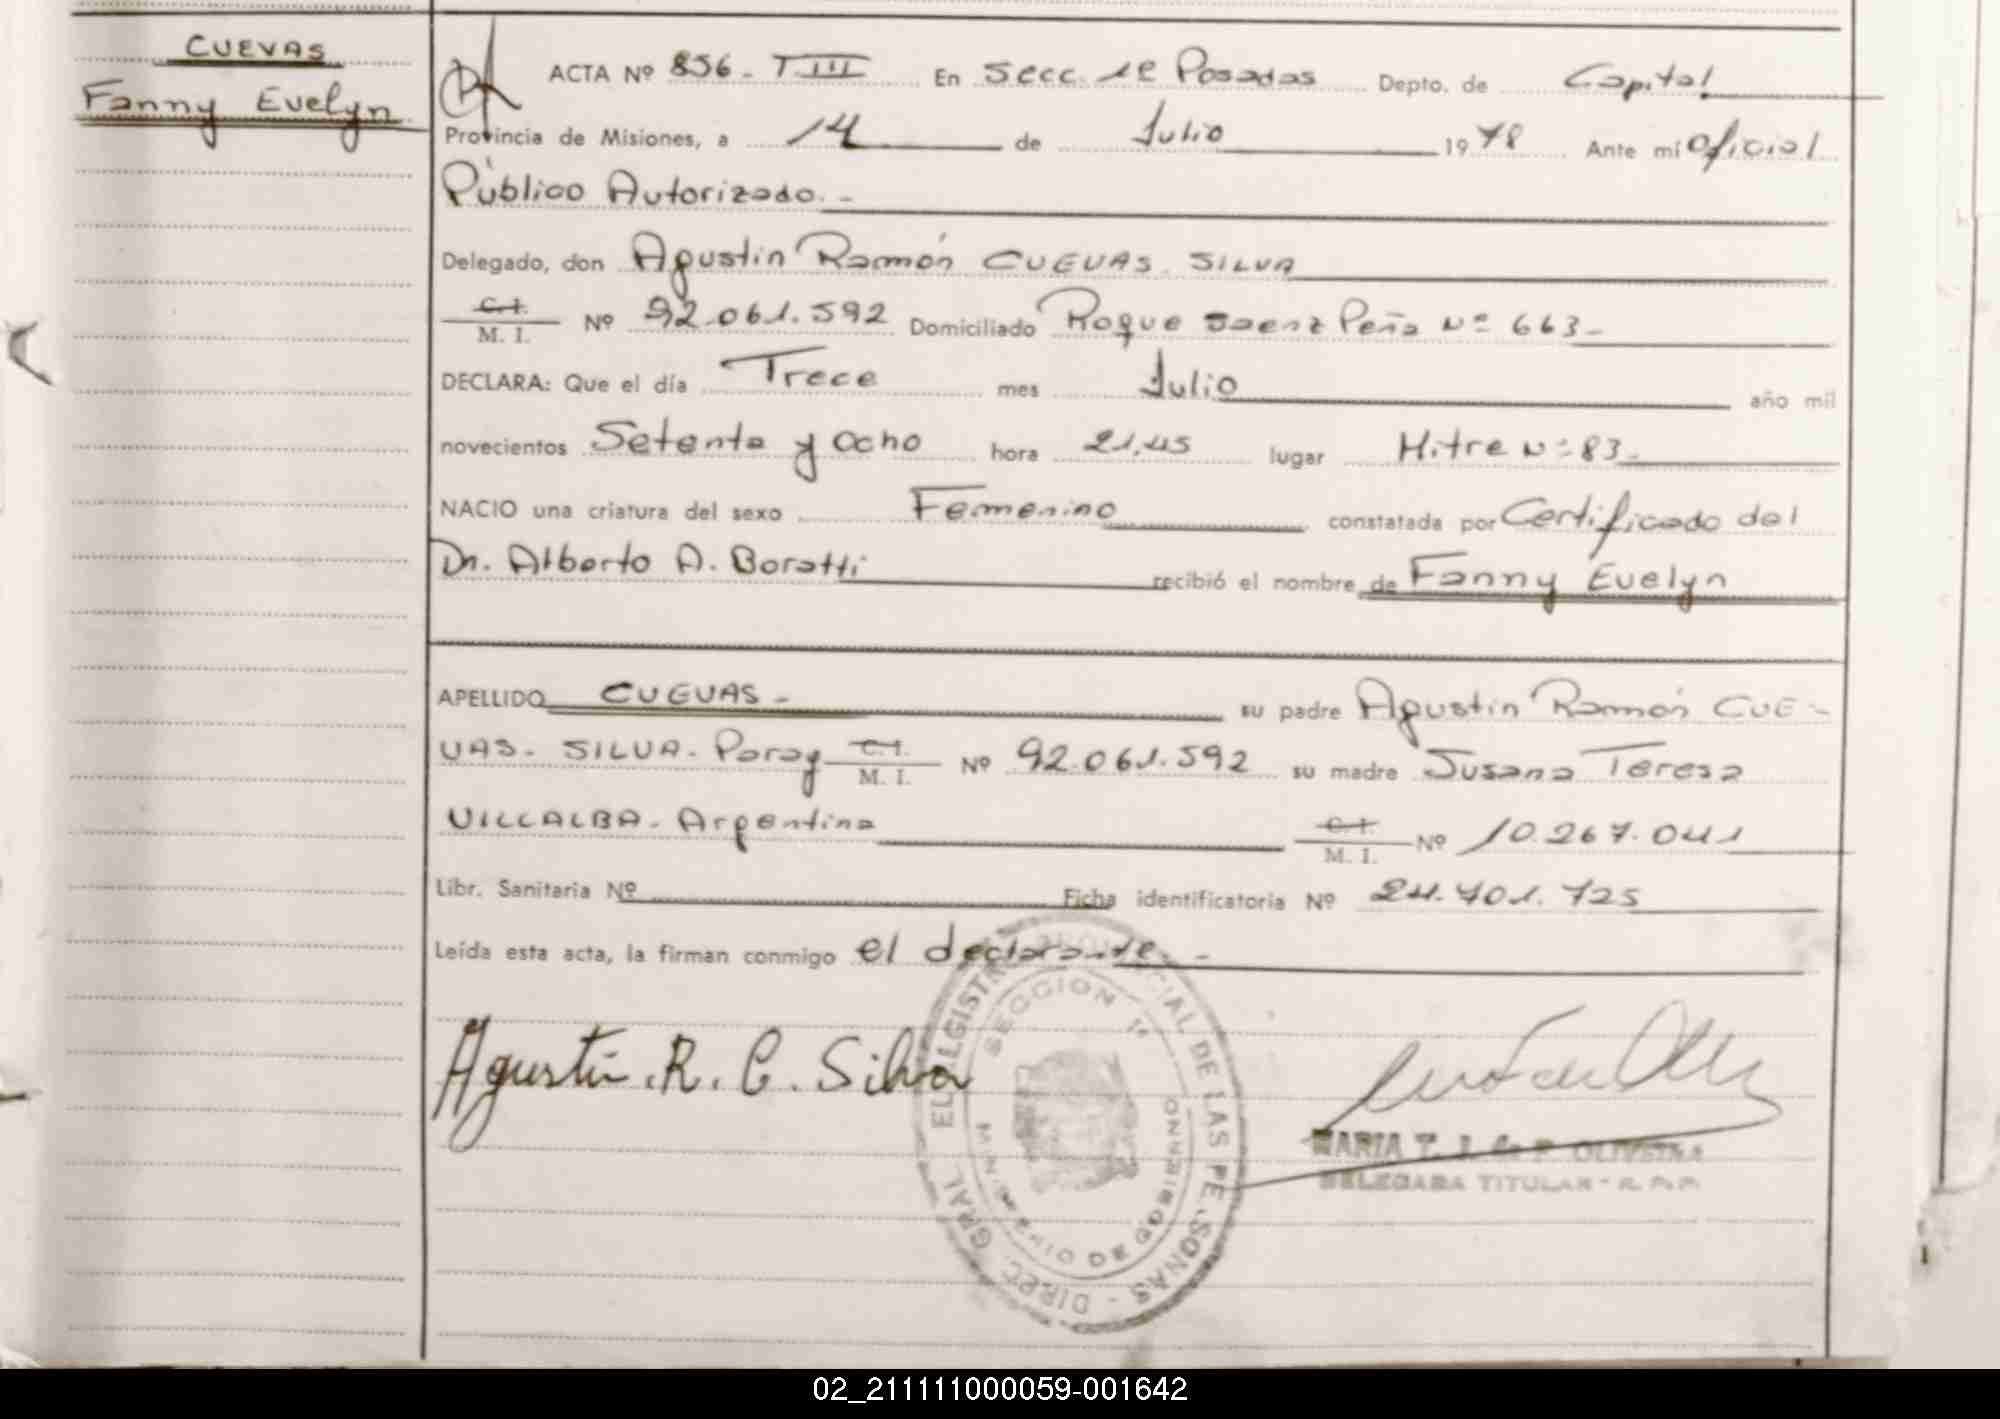 CUEVAS
Fanny Evelyn
ACTA Nº 856 - T III En Secc. 1ª Posadas Depto. de Capital
Provincia de Misiones, a 14 de Julio 1978 Ante mi Oficial
Público Autorizado. -
Delegado, don Agustin Ramón CUEVAS SILVA
C. I. M. I. Nº 92.061.592 Domiciliado Roque Saenz Peña Nº 663 -
DECLARA: Que el día Trece mes Julio año mil
novecientos Setenta y ocho hora 21,45 lugar Mitre Nº 83 -
NACIO una criatura del sexo Femenino constatada por Certificado del
Dr. Alberto A. Boratti recibió el nombre de Fanny Evelyn
APELLIDO CUEVAS - su padre Agustin Ramón CUE-
VAS - SILVA - Parag C. I. M. I. Nº 92.061.592 su madre Susana Teresa
VILLALBA - Argentina C. I. M. I. Nº 10.267.041
Libr. Sanitaria Nº Ficha identificatoria Nº 24.701.725
Leída esta acta, la firman conmigo el declarante -
Agustin. R. C. Silva
DIREC. GRAL DE LAS PERSONAS
SECCION 1ª
MINISTERIO DE GOBIERNO
MARIA T. J. de F. OLIVEIRA
DELEGADA TITULAR - R. P. P.
02_211111000059-001642